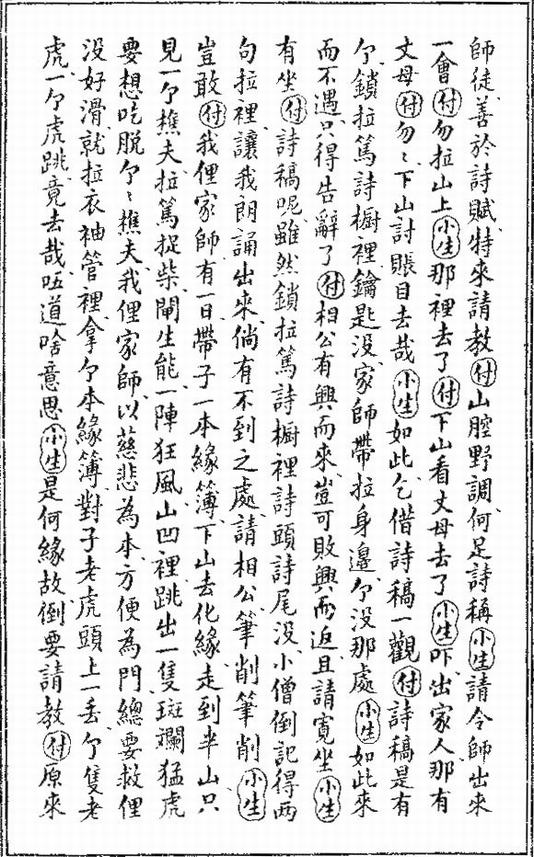 師徒善於詩賦特來請教付山腔野調何足詩稱小生請令師出來
一會付勿拉山上小生那裡去了付下山看丈母去了小生吓出家人那有
丈母付勿〻下山討賬目去哉小生如此乞借詩稿一觀付詩稿是有
个鎖拉篤詩櫥裡鑰匙没家師帶拉身邊个没那處小生如此來
而不遇只得告辭了付相公有興而來豈可敗興而返且請寬坐小生
有坐付詩稿呢雖然鎖拉篤詩櫥裡詩頭詩尾没小僧倒記得兩
句拉裡讓我朗誦出來倘有不到之處請相公筆削筆削小生
豈敢付我俚家師有一日帶子一本緣簿下山去化緣走到半山只
見一个樵夫拉篤捉柴鬧生能一陣狂風山凹裡跳出一隻斑斕猛虎
要想吃脱个〻樵夫我俚家師以慈悲為本方便為門總要救俚
没好滑就拉衣袖管裡拿个本緣簿對子老虎頭上一丢个隻老
虎一个虎跳竟去哉㕶道啥意思小生是何緣故倒要請教付原來